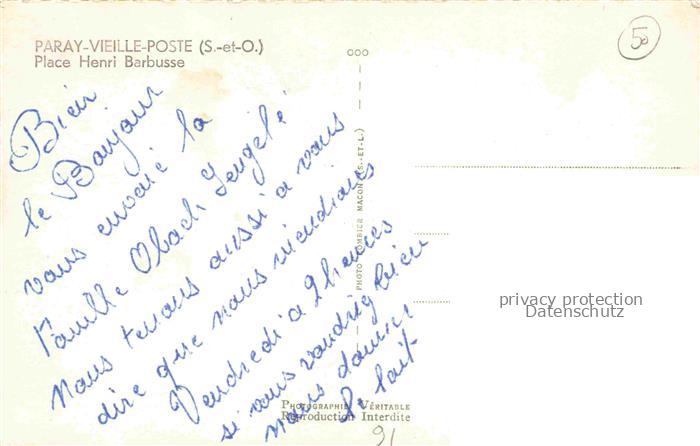 PARAY-VIEILLE-POSTE (S.-et-O.)
Place Henri Barbusse
50
Bien
le Bonjour
vous envoie la
Famille Obach Gengelé
Nous tenons aussi a vous
dire que nous viendrions
Vendredi a 9 heures
si vous vaudriez bien
nous donner
le lait
PHOTO COMBIER MACON (S.-ET-L.)
privacy protection
Datenschutz
PHOTOGRAPHIE VÉRITABLE
Reproduction Interdite
91